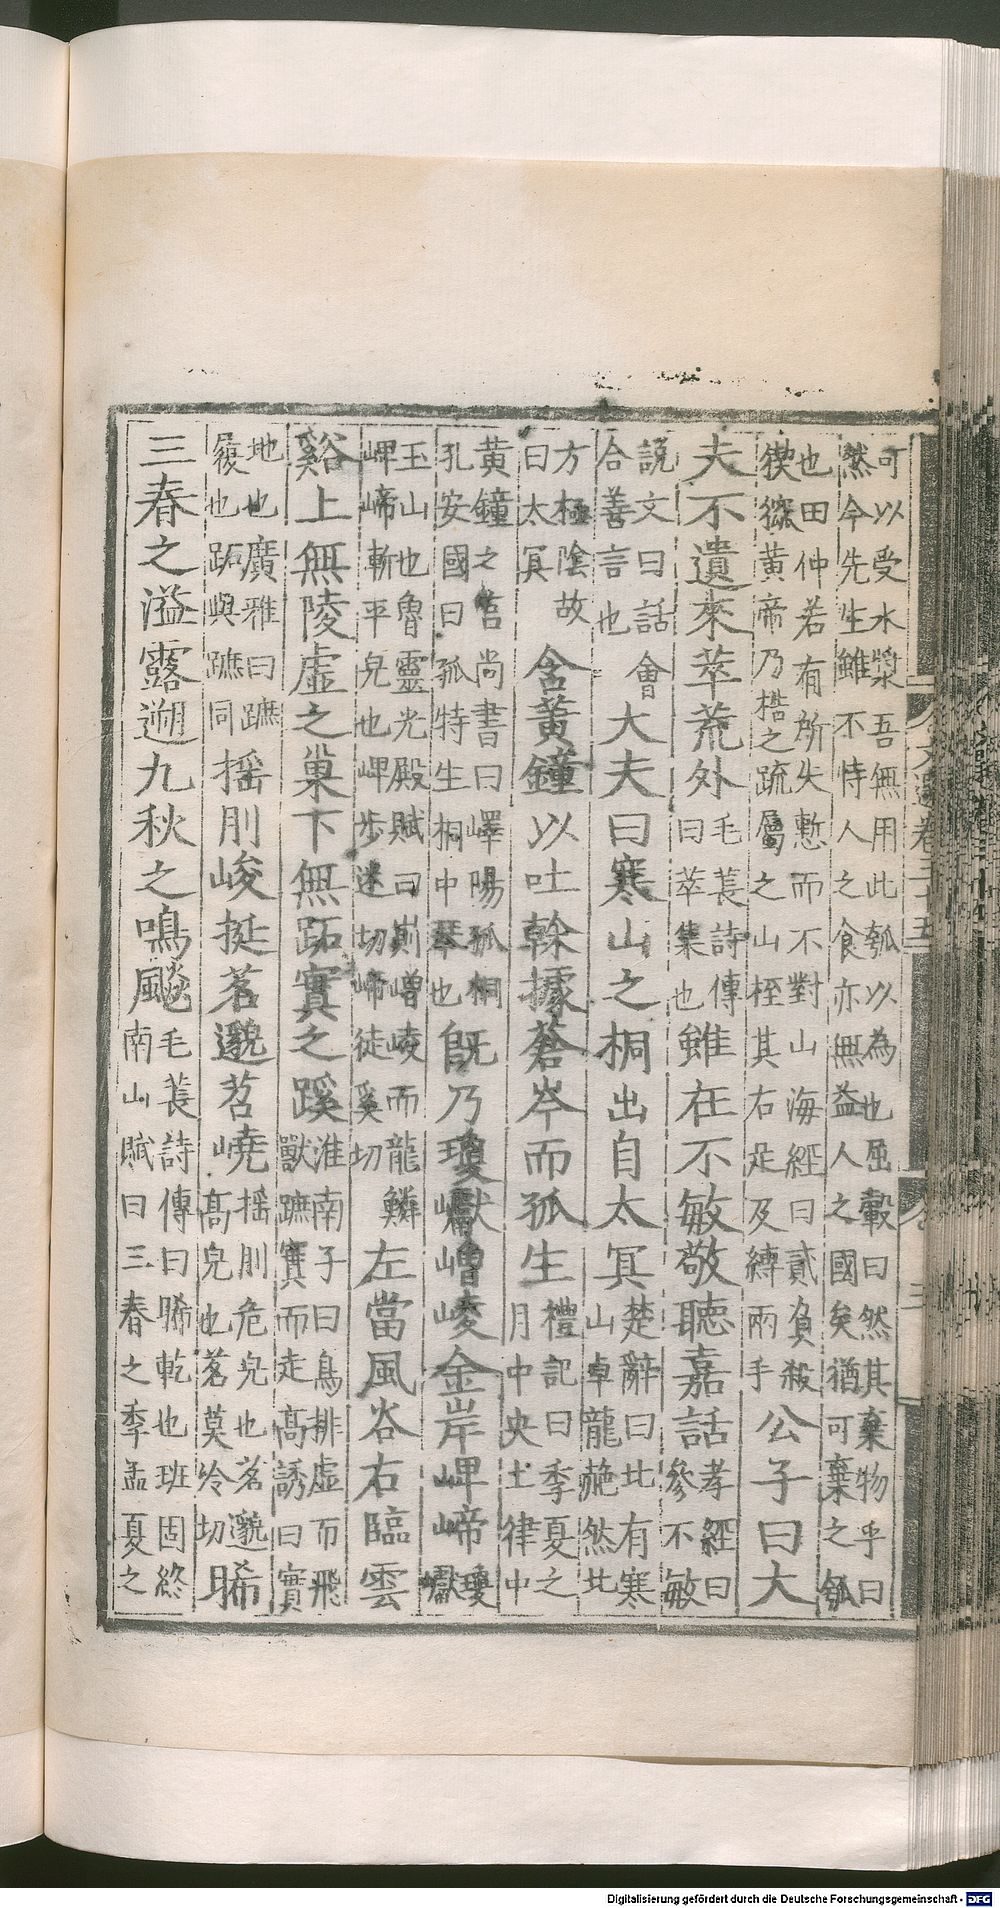 可以受水漿吾無用此瓠以為也屈轂曰然其棄物乎曰
然今先生雖不恃人之食亦無益人之國矣猶可棄之瓠
也田仲若有所失慙而不對山海經曰貳負殺
猰㺄黃帝乃梏之疏屬之山桎其右足及縛兩手公子曰大
夫不遺來萃荒外毛萇詩傳曰萃集也雖在不敏敬聽嘉話孝經曰參不敏
說文曰話會合善言也大夫曰寒山之桐出自太冥楚辭曰北有寒山卓龍赩然北
方極陰故曰太冥含黃鐘以吐榦據蒼岑而孤生禮記曰季夏之月中央土律中
黃鐘之宮尚書曰嶧陽孤桐孔安國曰孤特生桐中琴也既乃瓊巘嶒崚金岸岬崹瓊巘
玉山也魯靈光殿賦曰崱嶒崚而龍鱗岬崹斬平皃也岬步迷切崹徒奚切左當風谷右臨雲
谿上無陵虛之巢下無跖實之蹊淮南子曰鳥排虛而飛獸蹠實而走高誘曰實
地也廣雅曰蹠履也跖與蹠同搖刖峻挺茗邈苕嶢搖刖危皃也茗邈高皃也茗莫冷切晞
三春之溢露遡九秋之鳴飈毛萇詩傳曰晞乾也班固終南山賦曰三春之季孟夏之
Digitalisierung gefördert durch die Deutsche Forschungsgemeinschaft - DFG